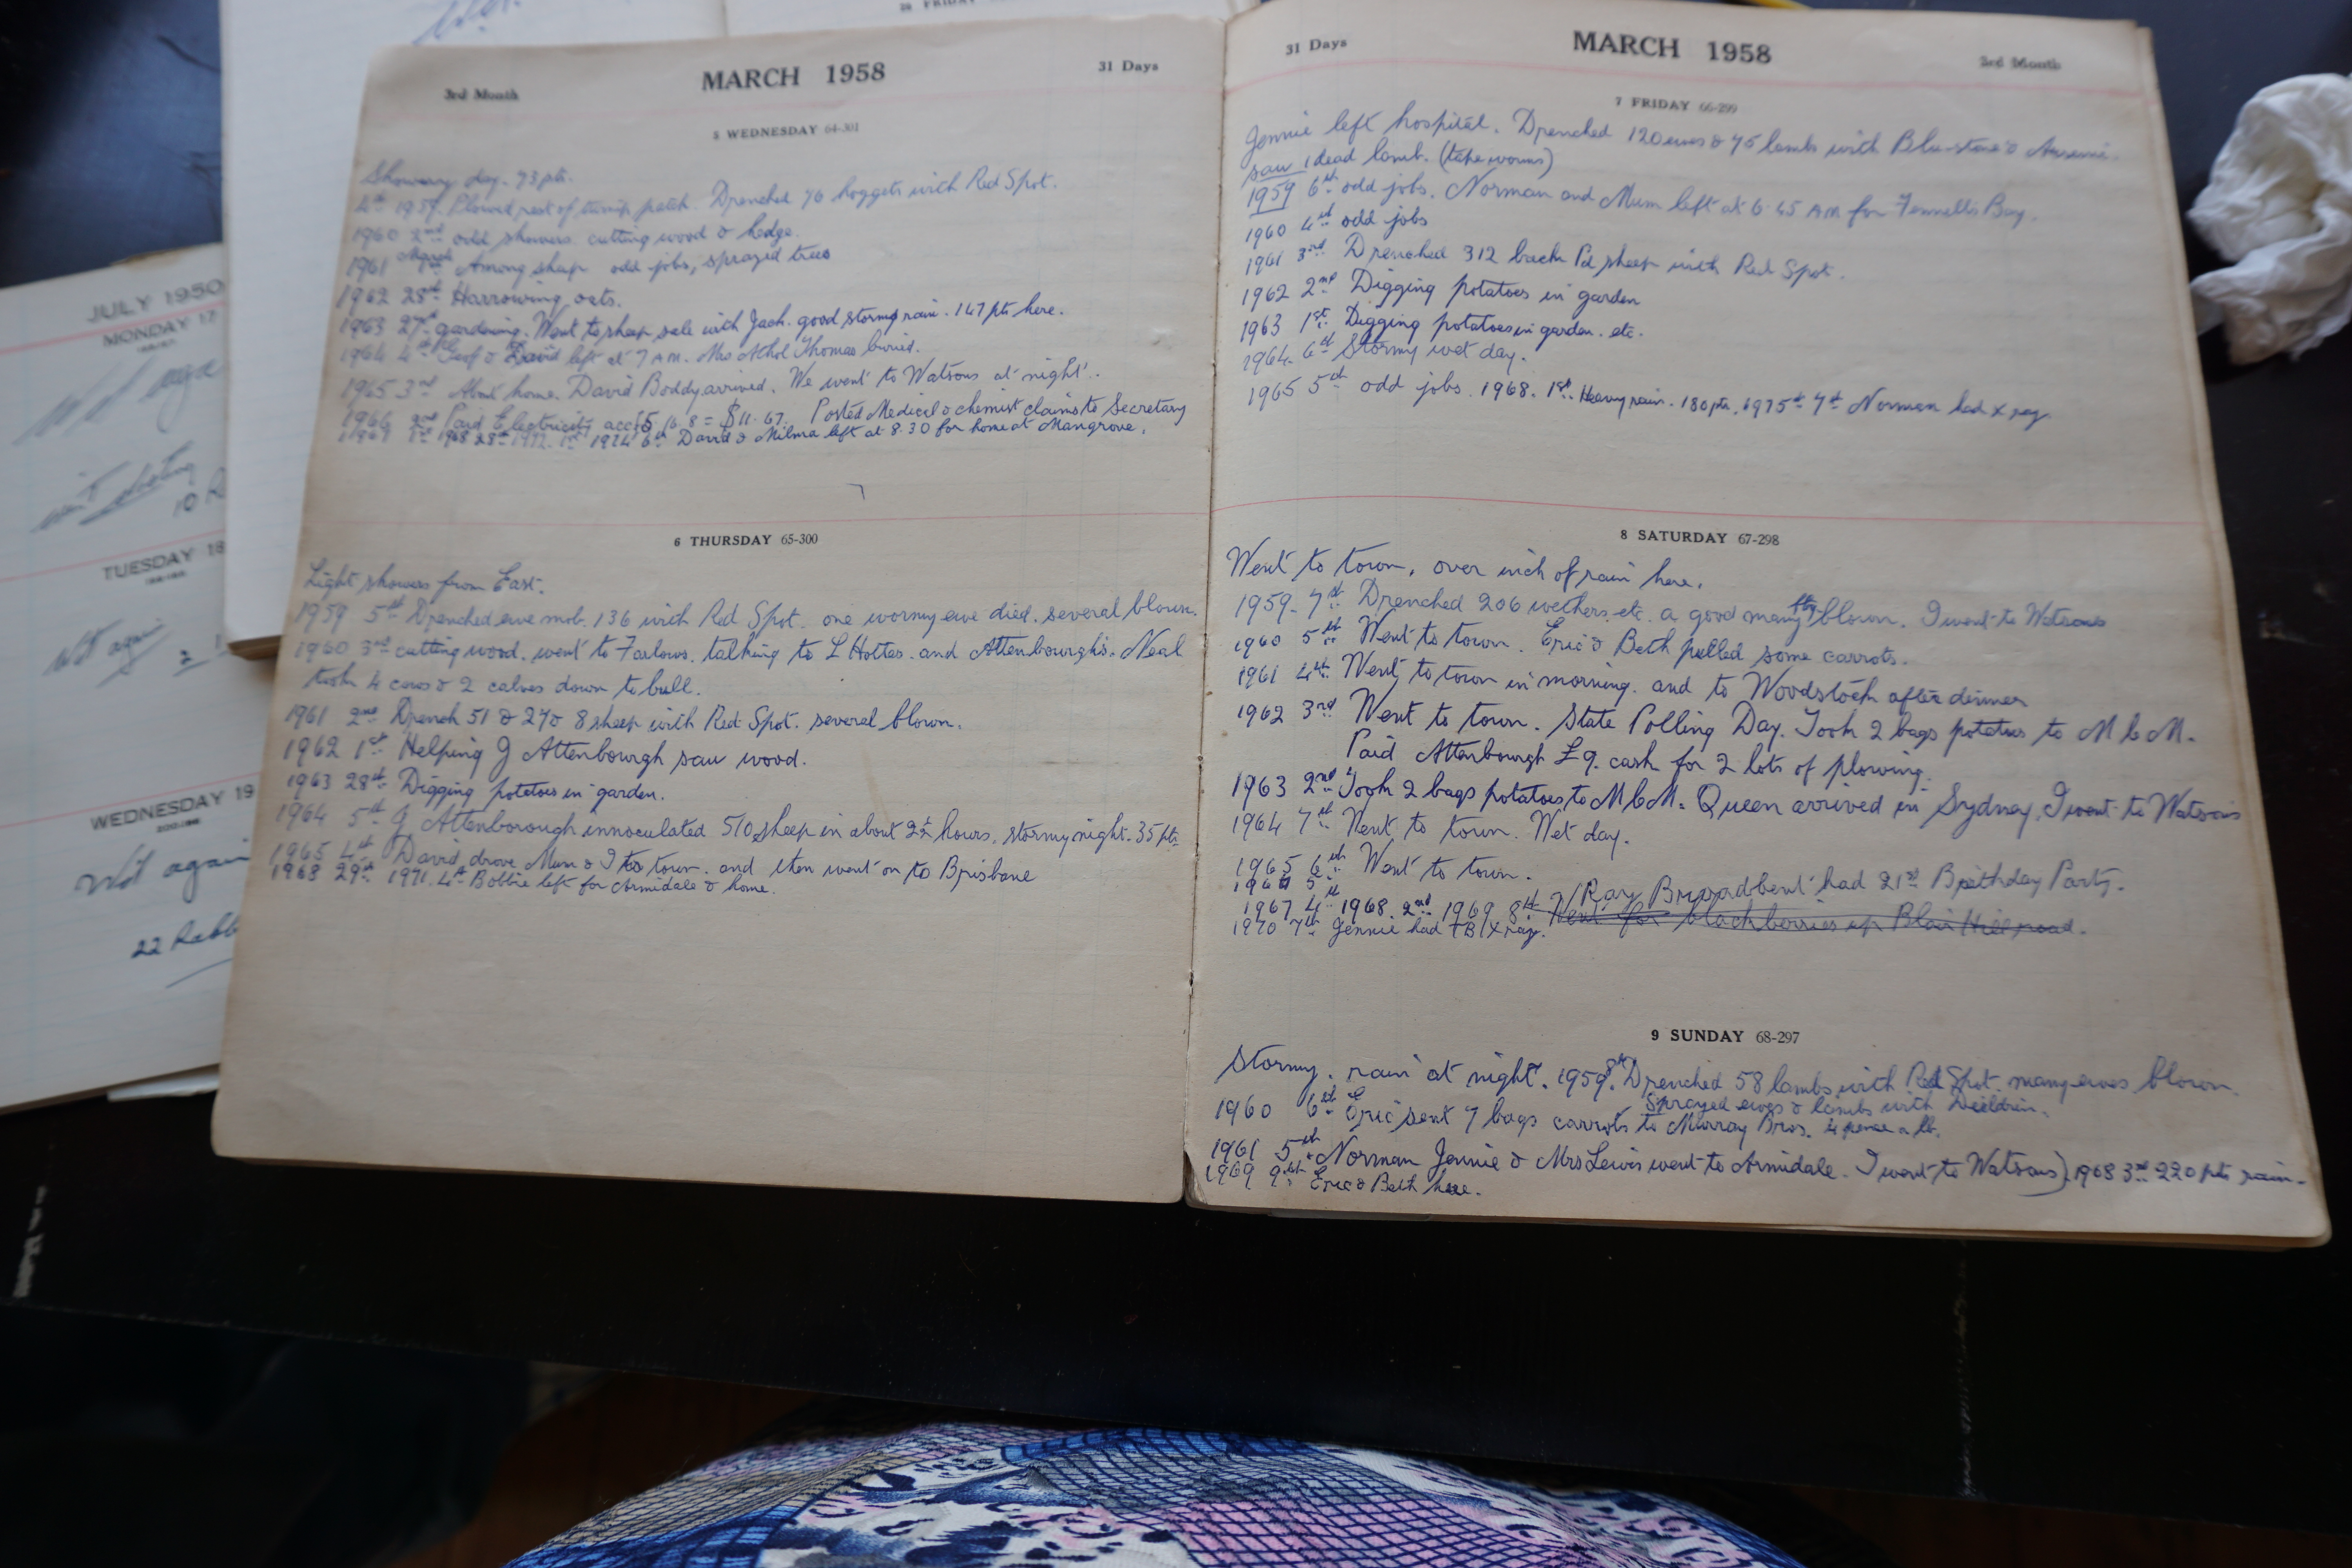 3rd Month MARCH 1958 31 Days
5 WEDNESDAY 64-301
Showery day. 73 pts.
4th 1959. Plowed rest of turnip patch. Drenched 76 hoggets with Red Spot.
1960 2nd odd showers cutting wood & hedge.
1961 March 1st Among sheep odd jobs, sprayed trees
1962 28th Harrowing oats.
1963 27th gardening. Went to sheep sale with Jack. good stormy rain. 147 pts here.
1964 4th Geof & David left at 7 A.M. Mrs Athol Thomas buried.
1965 3rd About home. David Boddy arrived. We went to Watsons at night.
1966 2nd Paid Electricity acct 5.16.8 = $11.67. Posted Medical & chemist claims to Secretary
1967 1st 1968 28th 1972. 1st 1974 6th David & Milma left at 8.30 for home at Mangrove.
6 THURSDAY 65-300
Light showers from East.
1959 5th Drenched ewe mob. 136 with Red Spot. one wormy ewe died. several blown.
1960 3rd cutting wood. went to Farlows. talking to L Hottes. and Attenbourghs. Neal
took 4 cows & 2 calves down to bull.
1961 2nd Drench 51 & 27 & 8 sheep with Red Spot. several blown.
1962 1st Helping J Attenbourgh saw wood.
1963 28th Digging potatoes in garden.
1964 5th J Attenborough innoculated 510 sheep in about 2½ hours. stormy night. 35 pts.
1965 4th David drove Mum & I to town. and then went on to Brisbane
1968 29th 1971. 4th Bobbie left for Armidale & home.
31 Days MARCH 1958 3rd Month
7 FRIDAY 66-299
Jennie left hospital. Drenched 120 ewes & 75 lambs with Blu-stone & Arsenic.
saw 1 dead lamb. (tape worms)
1959 6th odd jobs. Norman and Mum left at 6.45 A.M. for Fennells Bay.
1960 4th odd jobs
1961 3rd Drenched 312 back Pd sheep with Red Spot.
1962 2nd Digging potatoes in garden
1963 1st Digging potatoes in garden. etc.
1964. 6th Stormy wet day.
1965 5th odd jobs. 1968. 1st Heavy rain. 180 pts. 1975 7th Norman had x ray
8 SATURDAY 67-298
Went to town, over inch of rain here.
1959. 7th Drenched 206 wethers. etc. a good many fly blown. I went to Watsons
1960 5th Went to town. Eric & Beth pulled some carrots.
1961 4th Went to town in morning. and to Woodstock after dinner
1962 3rd Went to town. State Polling Day. Took 2 bags potatoes to M b M.
Paid Attenbourgh £9. cash for 2 lots of plowing.
1963 2nd Took 2 bags potatoes to M b M. Queen arrived in Sydney. I went to Watsons
1964 7th Went to town. Wet day.
1965 6th Went to town.
1966 5th Ray Broadbent had 21st Birthday Party.
1967 4th 1968. 2nd 1969. 8th Went for blackberries up Blair Hill road.
1970 7th Jennie had TB X ray.
9 SUNDAY 68-297
Stormy. rain at night. 1959 8th Drenched 58 lambs with Red Spot. many ewes blown.
Sprayed ewes & lambs with Dieldrin.
1960 6th Eric sent 7 bags carrots to Murray Bros. 4 pence a lb.
1961 5th Norman Jennie & Mrs Lewis went to Armidale. I went to Watsons) 1968 3rd 220 pts rain.
1969 9th Eric & Beth here.
26 FRIDAY
JULY 1950
MONDAY 17
10
TUESDAY 18
Wet again
2 1
WEDNESDAY 19
200-165
Wet again
22 Rabb